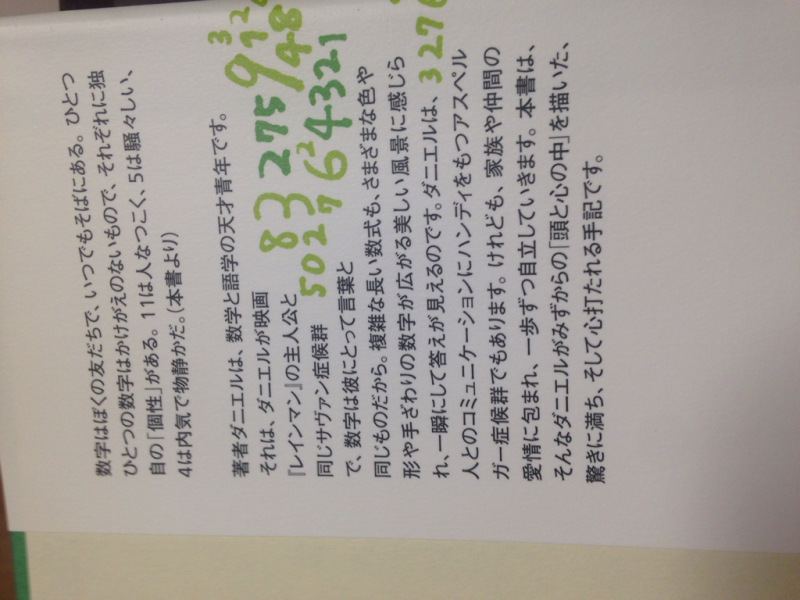 数字はぼくの友だちで、いつでもそばにある。ひとつ
ひとつの数字はかけがえのないもので、それぞれに独
自の「個性」がある。11は人なつこく、5は騒々しい、
4は内気で物静かだ。(本書より)
著者ダニエルは、数学と語学の天才青年です。
それは、ダニエルが映画
『レインマン』の主人公と
同じサヴァン症候群
で、数字は彼にとって言葉と
同じものだから。複雑な長い数式も、さまざまな色や
形や手ざわりの数字が広がる美しい風景に感じら
れ、一瞬にして答えが見えるのです。ダニエルは、
人とのコミュニケーションにハンディをもつアスペル
ガー症候群でもあります。けれども、家族や仲間の
愛情に包まれ、一歩ずつ自立していきます。本書は、
そんなダニエルがみずからの「頭と心の中」を描いた、
驚きに満ち、そして心打たれる手記です。
3
9
48
8 3 275
502 7 6 2 4321
3 27